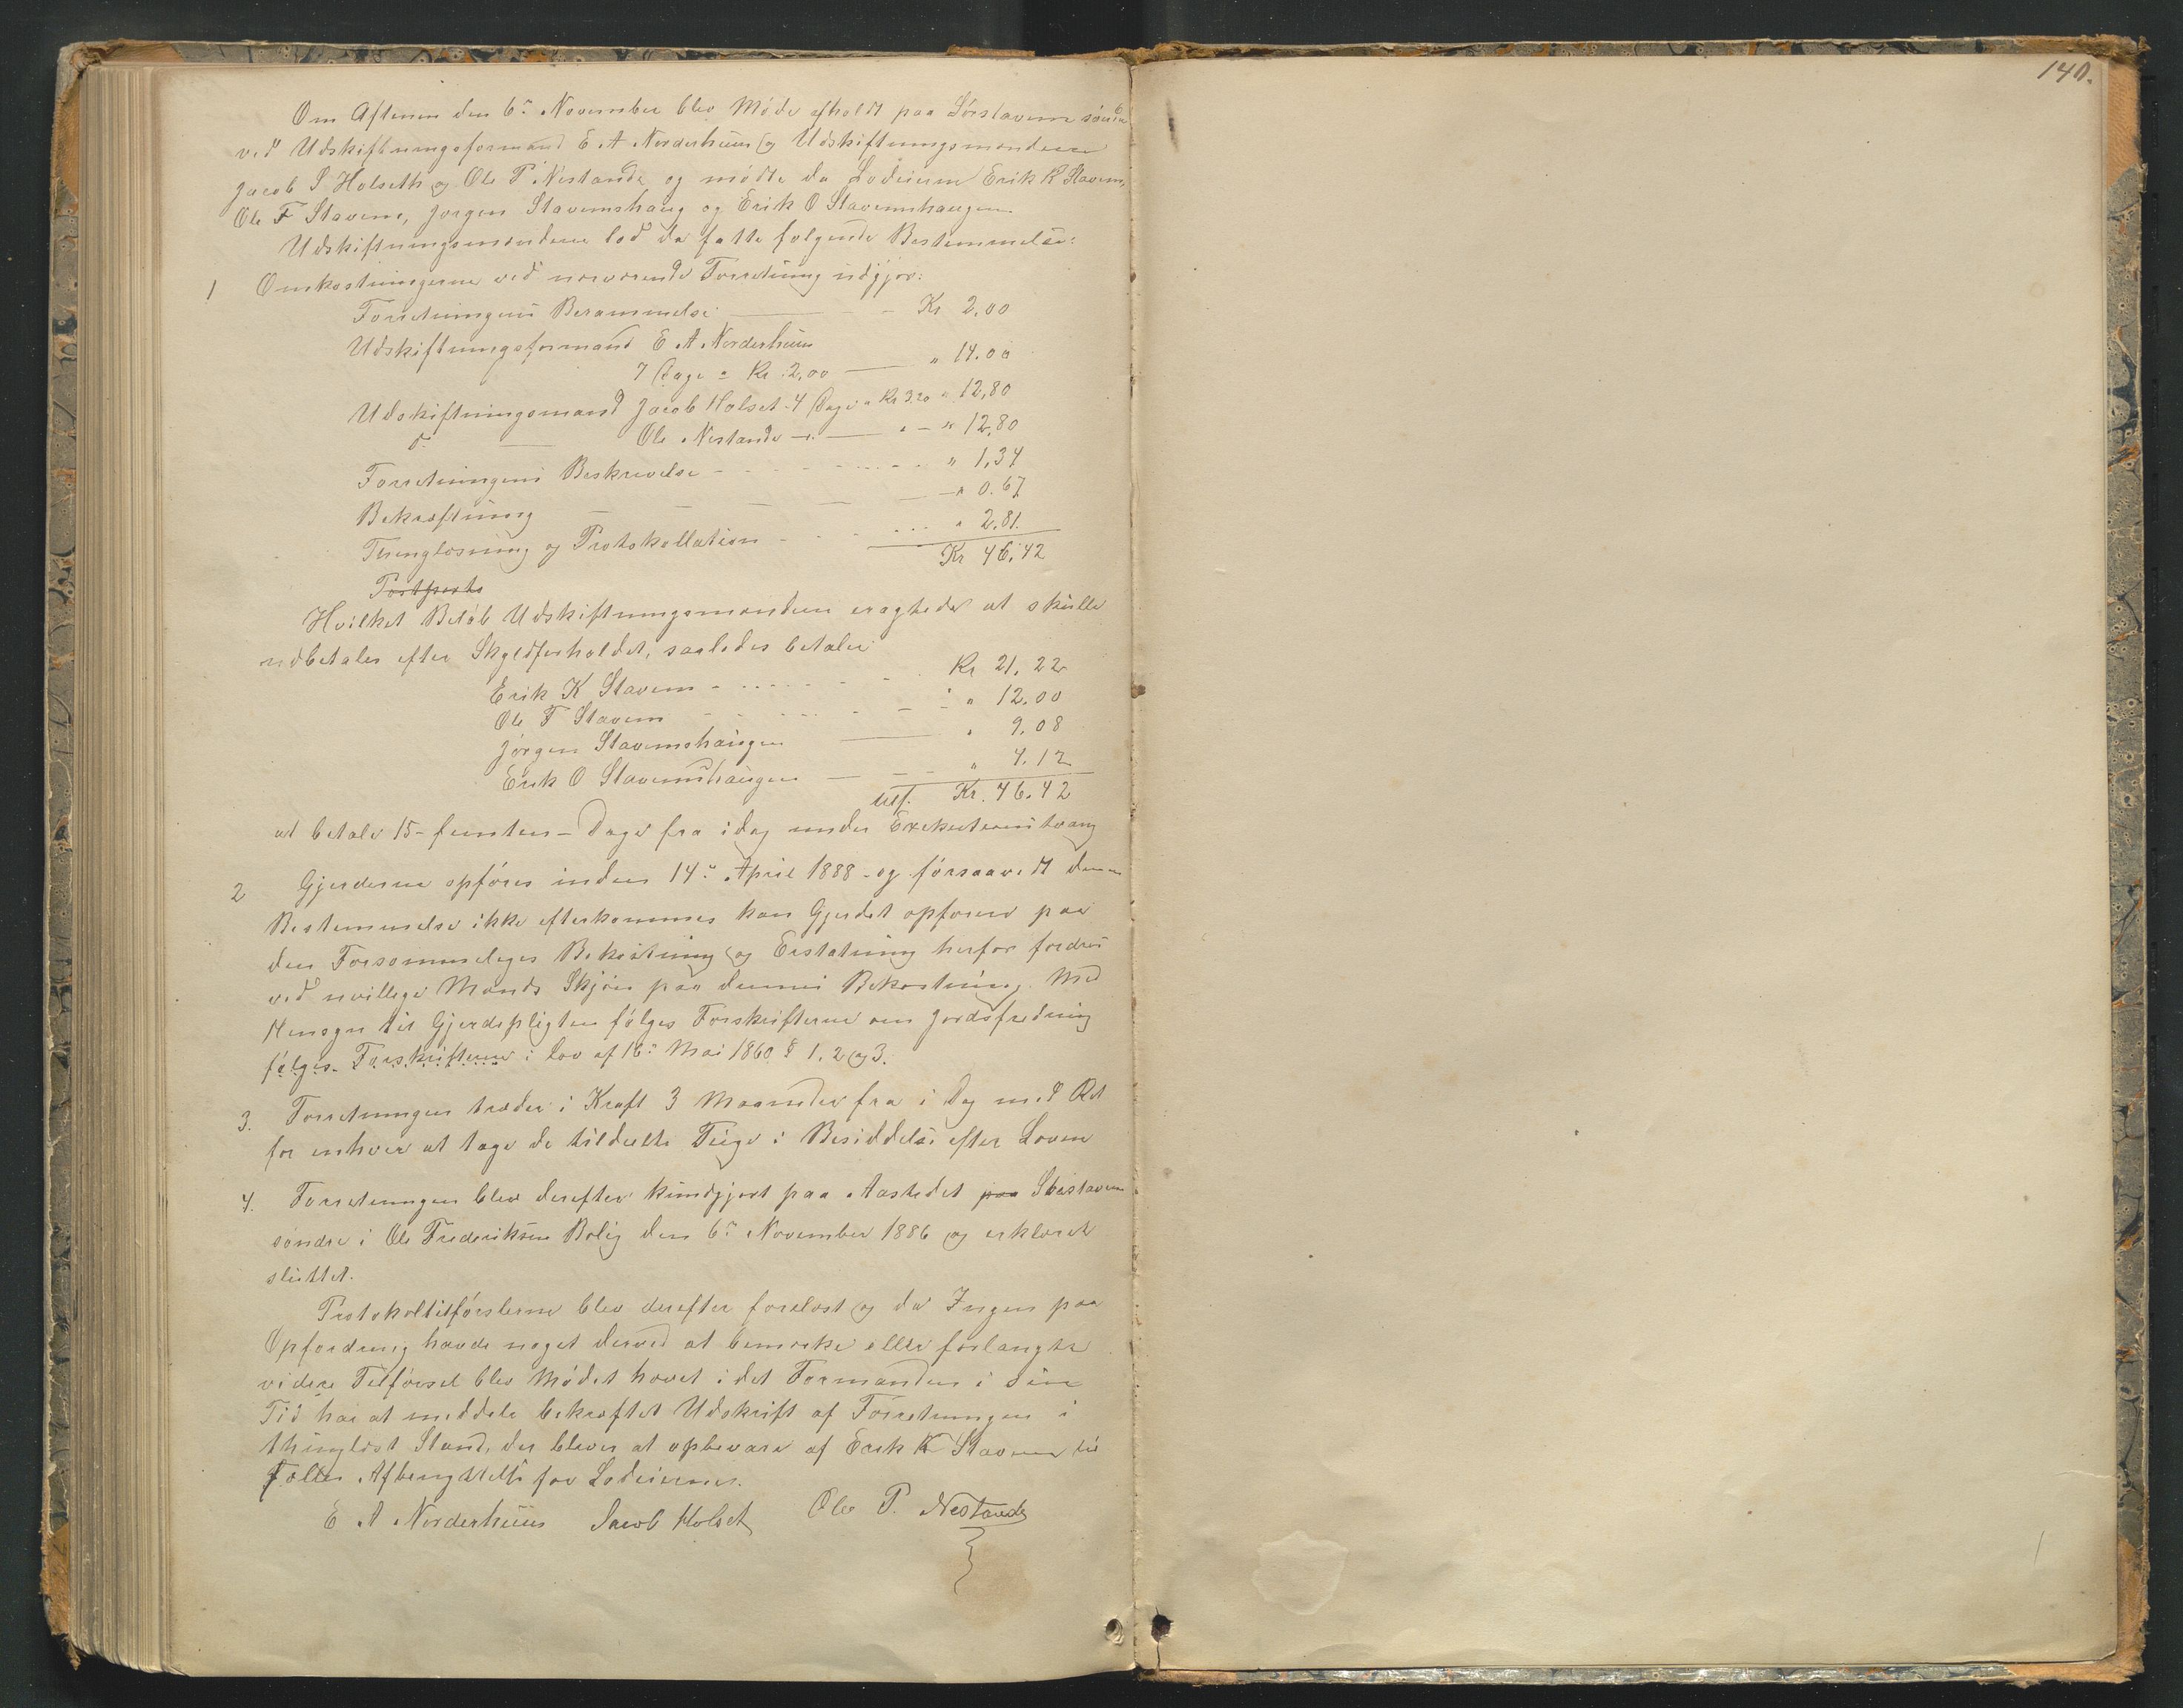 140.
Om Aftenen den 6te November blev Møde afholdt paa Sørstavem søndre
ved Udskiftningsformand E A Norderhuus og Udskiftningsmændene
Jacob S Holseth og Ole P. Nestande og mødte da Lodeierne Erik K Stavem,
Ole F Stavem, Jørgen Stavemshaug og Erik O Stavemshaugen
Udskiftningsmændene lod da fatte følgende Bestemmelse:
1 Omkostningerne ved nærværende Forretning udgjør:
Forretningens Berammelse — Kr 2,00
Udskiftningsformand E A Norderhuus
7 Dage a Kr 2,00 — " 14.00
Udskiftningsmand Jacob Holset 4 Dage a Kr 3.20 " 12,80
do — Ole Nestande — " — " 12,80
Forretningens Beskrivelse - - - " 1,34
Bekræftning — — — " 0.67
Thinglæsning og Protokollation - - - " 2,81.
Kr 46,42
Postporto
Hvilket Beløb Udskiftningsmændene eragtede at skulle
udbetales efter Skyldforholdet, saaledes betaler
Erik K Stavem - - - Kr 21,22
Ole F Stavem - - - " 12,00
Jørgen Stavemshaugen — " 9,08
Erik O Stavemshaugen — " 4.12
Kr. 46.42
at betale 15 - femten - Dage fra idag under Exekutionstvang
2 Gjerderne opføres inden 14de April 1888 - og forsaavidt denne
Bestemmelse ikke efterkommes kan Gjerdet opføres paa
den Forsømmeliges Bekostning og Erstatning herfor fordres
ved uvillige Mænds Skjøn paa dennes Bekostning. Med
Hensyn til Gjerdepligten følges Forskrifterne om Jordsfredning
følges Forskrifterne i Lov af 16de Mai 1860 § 1, 2 og 3.
3. Forretningen træder i Kraft 3 Maaneder fra i Dag med Ret
for enhver at tage de tildeelte Teige i Besiddelse efter Loven
4. Forretningen blev derefter kundgjort paa Aastedet paa Sørstavem
søndre i Ole Frederiksens Bolig den 6te November 1886 og erklæret
sluttet.
Protokoltilførslerne blev derefter forelæst og da Ingen paa
Opfordring havde noget derved at bemærke eller forlangte
videre Tilførsel blev Mødet hævet i det Formanden i sin
Tid har at meddele bekræftet Udskrift af Forretningen i
thinglæst Stand, der bliver at opbevare af Erik K Stavem til
fælles Afbenyttelse for Lodeierne.
E A Norderhuus Jacob Holset Ole P. Nestande